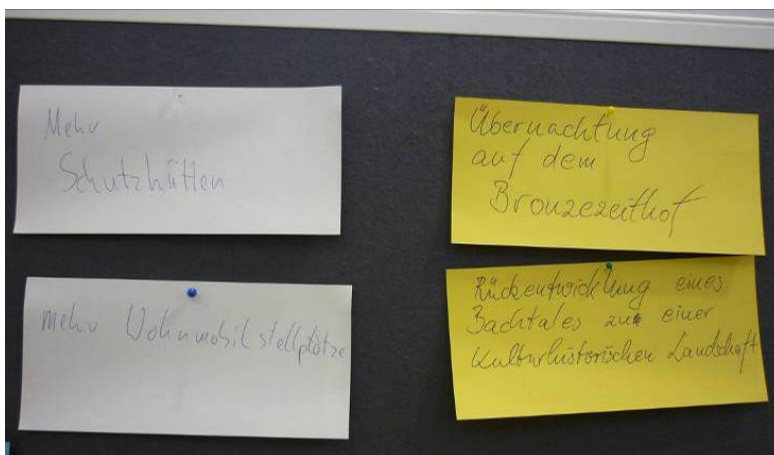 Mehr
Schutzhütten
mehr Wohnmobilstellplätze
Übernachtung
auf dem
Bronzezeithof
Rückentwicklung eines
Bachtales zu einer
Kulturhistorischen Landschaft